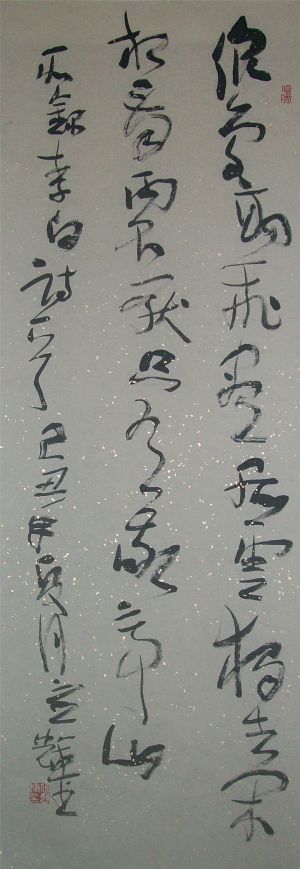 眾鳥高飛盡孤雲獨去閑
相看兩不厭只有敬亭山
右錄李白詩一首己丑年夏月書